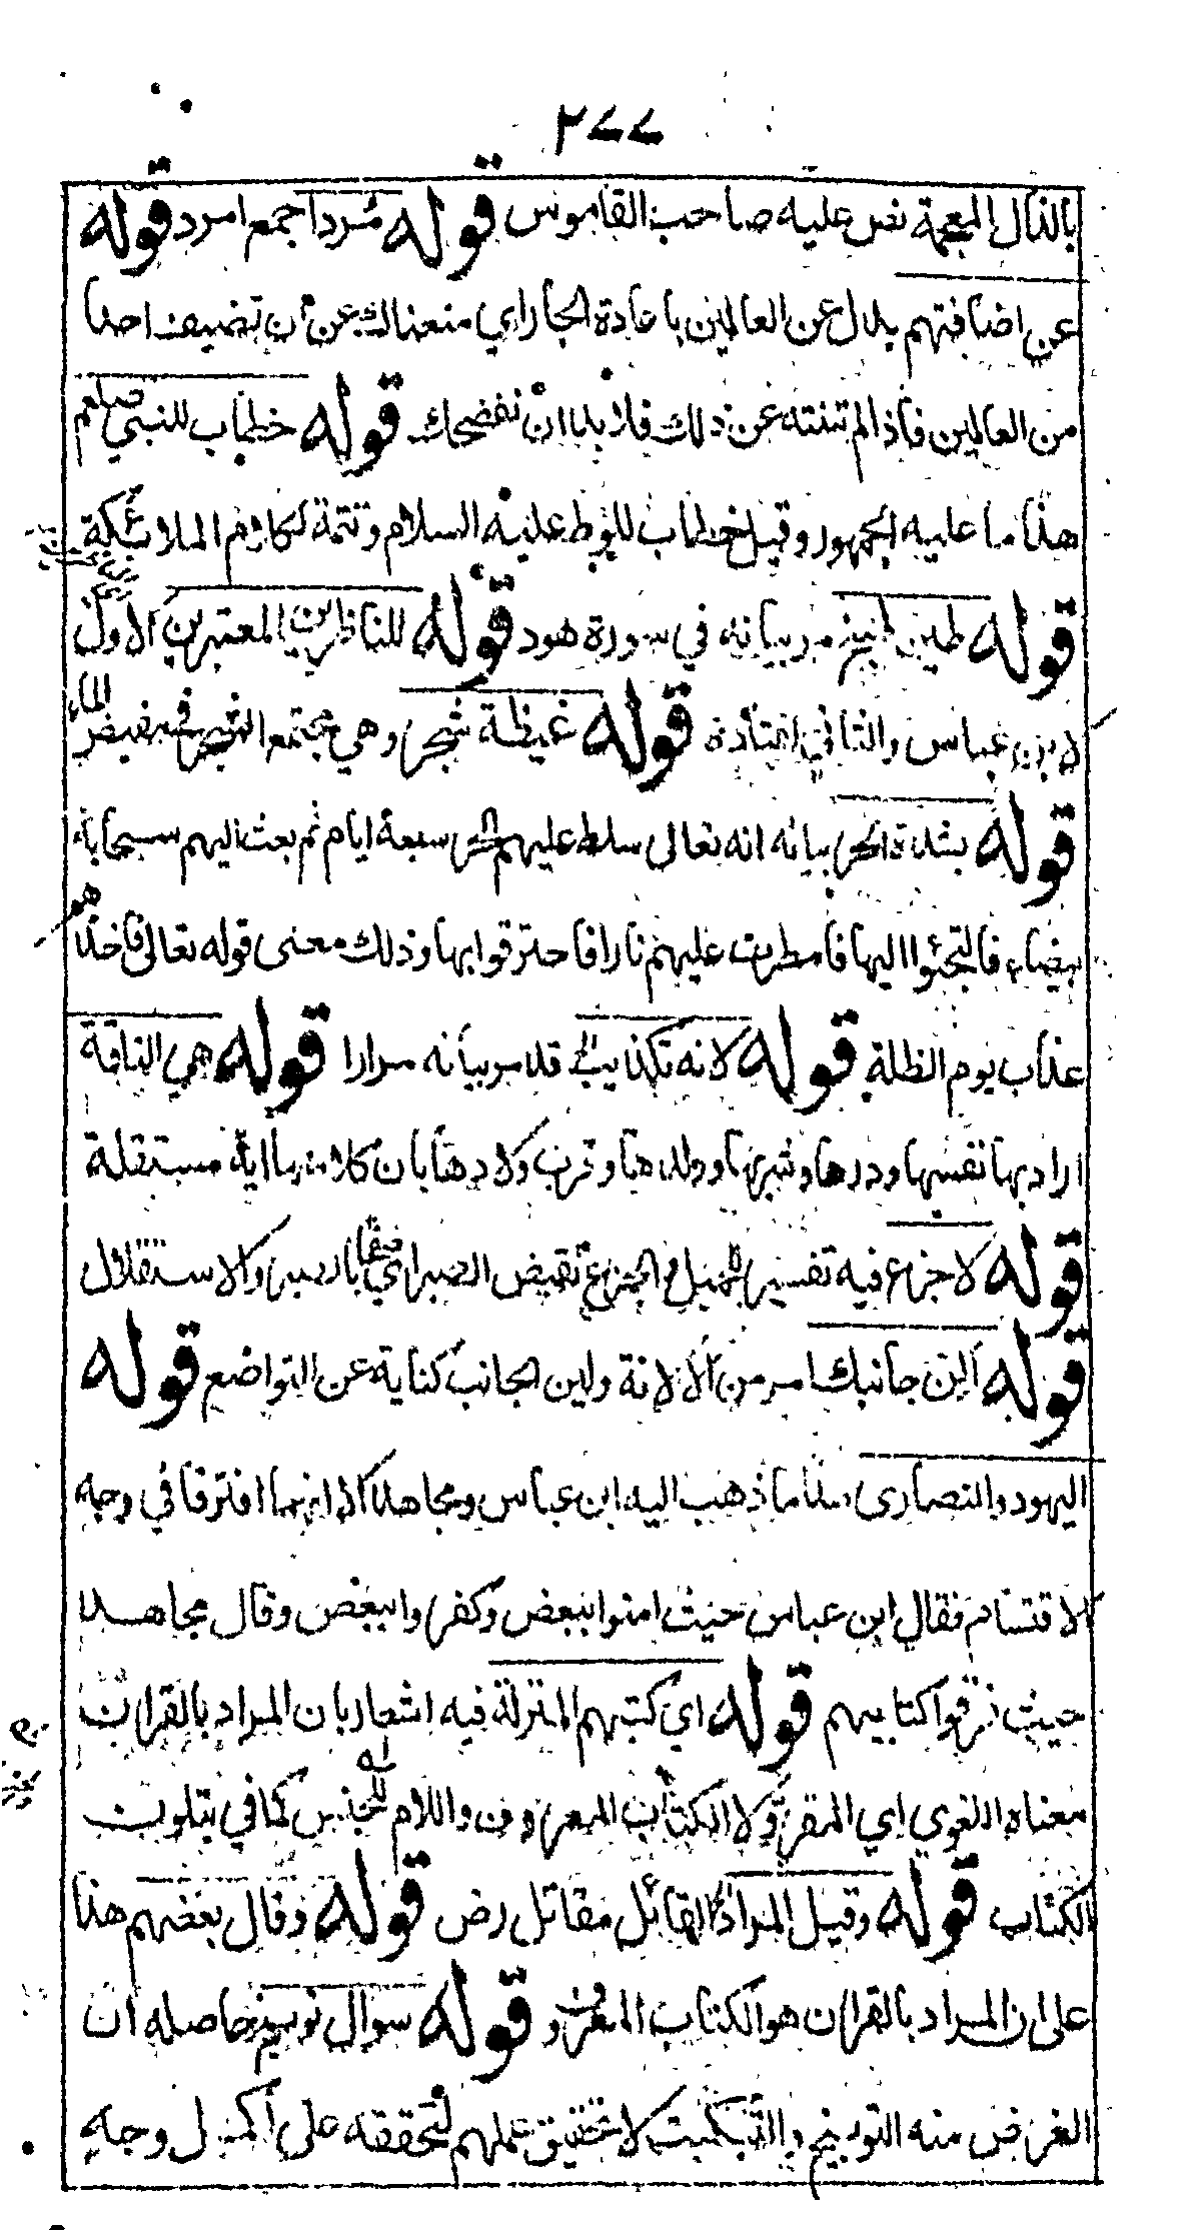 ٢٧٧
بالذال المعجمة نص عليه صاحب القاموس قوله مردا جمع امرد قوله
عن اضافتهم بدل عن العالمين باعادة الجار اي منعناك عن أن تضيف احدا
من العالمين فاذا لم تنته عن ذلك فلا بد ان نفضحك قوله خطاب للنبي صلعم
هذا ما عليه الجمهور وقيل خطاب للوط عليه السلام وتتمة لكلام الملائكة
قوله طين طبخ مر بيانه في سورة هود قوله للناظرين المعتبرين الاول
لابن عباس والثاني لقتادة قوله غيظة شجر وهي مجتمع الشجر في مغيض الماء
قوله بشدة الحر بيانه انه تعالى سلط عليهم الحر سبعة ايام ثم بعث اليهم سحابة
بيضاء فالتجئوا اليها فامطرت عليهم نارا فاحترقوا بها وذلك معنى قوله تعالى فاخذهم
عذاب يوم الظلة قوله لانه تكذيب الخ قد مر بيانه مرارا قوله هي الناقة
اراد بها نفسها ودرها وشربها وولدها وقرب ولادها بان كلا منها اية مستقلة
قوله لا جزع فيه تفسير للجميل والجزع نقيض الصبر اي حقا بالصبر والاستقلال
قوله ألن جانبك امر من الالانة ولين الجانب كناية عن التواضع قوله
اليهود والنصارى هذا ما ذهب اليه ابن عباس ومجاهد الا انهما افترقا في وجه
الاقتسام فقال ابن عباس حيث امنوا ببعض وكفروا ببعض وقال مجاهد
حيث فرقوا كتابيهم قوله اي كتبهم المنزلة فيه اشعار بان المراد بالقران
معناه اللغوي اي المقرو لا الكتاب المعروف واللام للجنس كما في يتلون
الكتاب قوله وقيل المراد القائل مقاتل رض قوله وقال بعضهم هذا
على ان المراد بالقران هو الكتاب المعروف قوله سوال توبيخ حاصله ان
الغرض منه التوبيخ والتبكيت لا تحقيق عملهم لتحققه على أكمل وجه